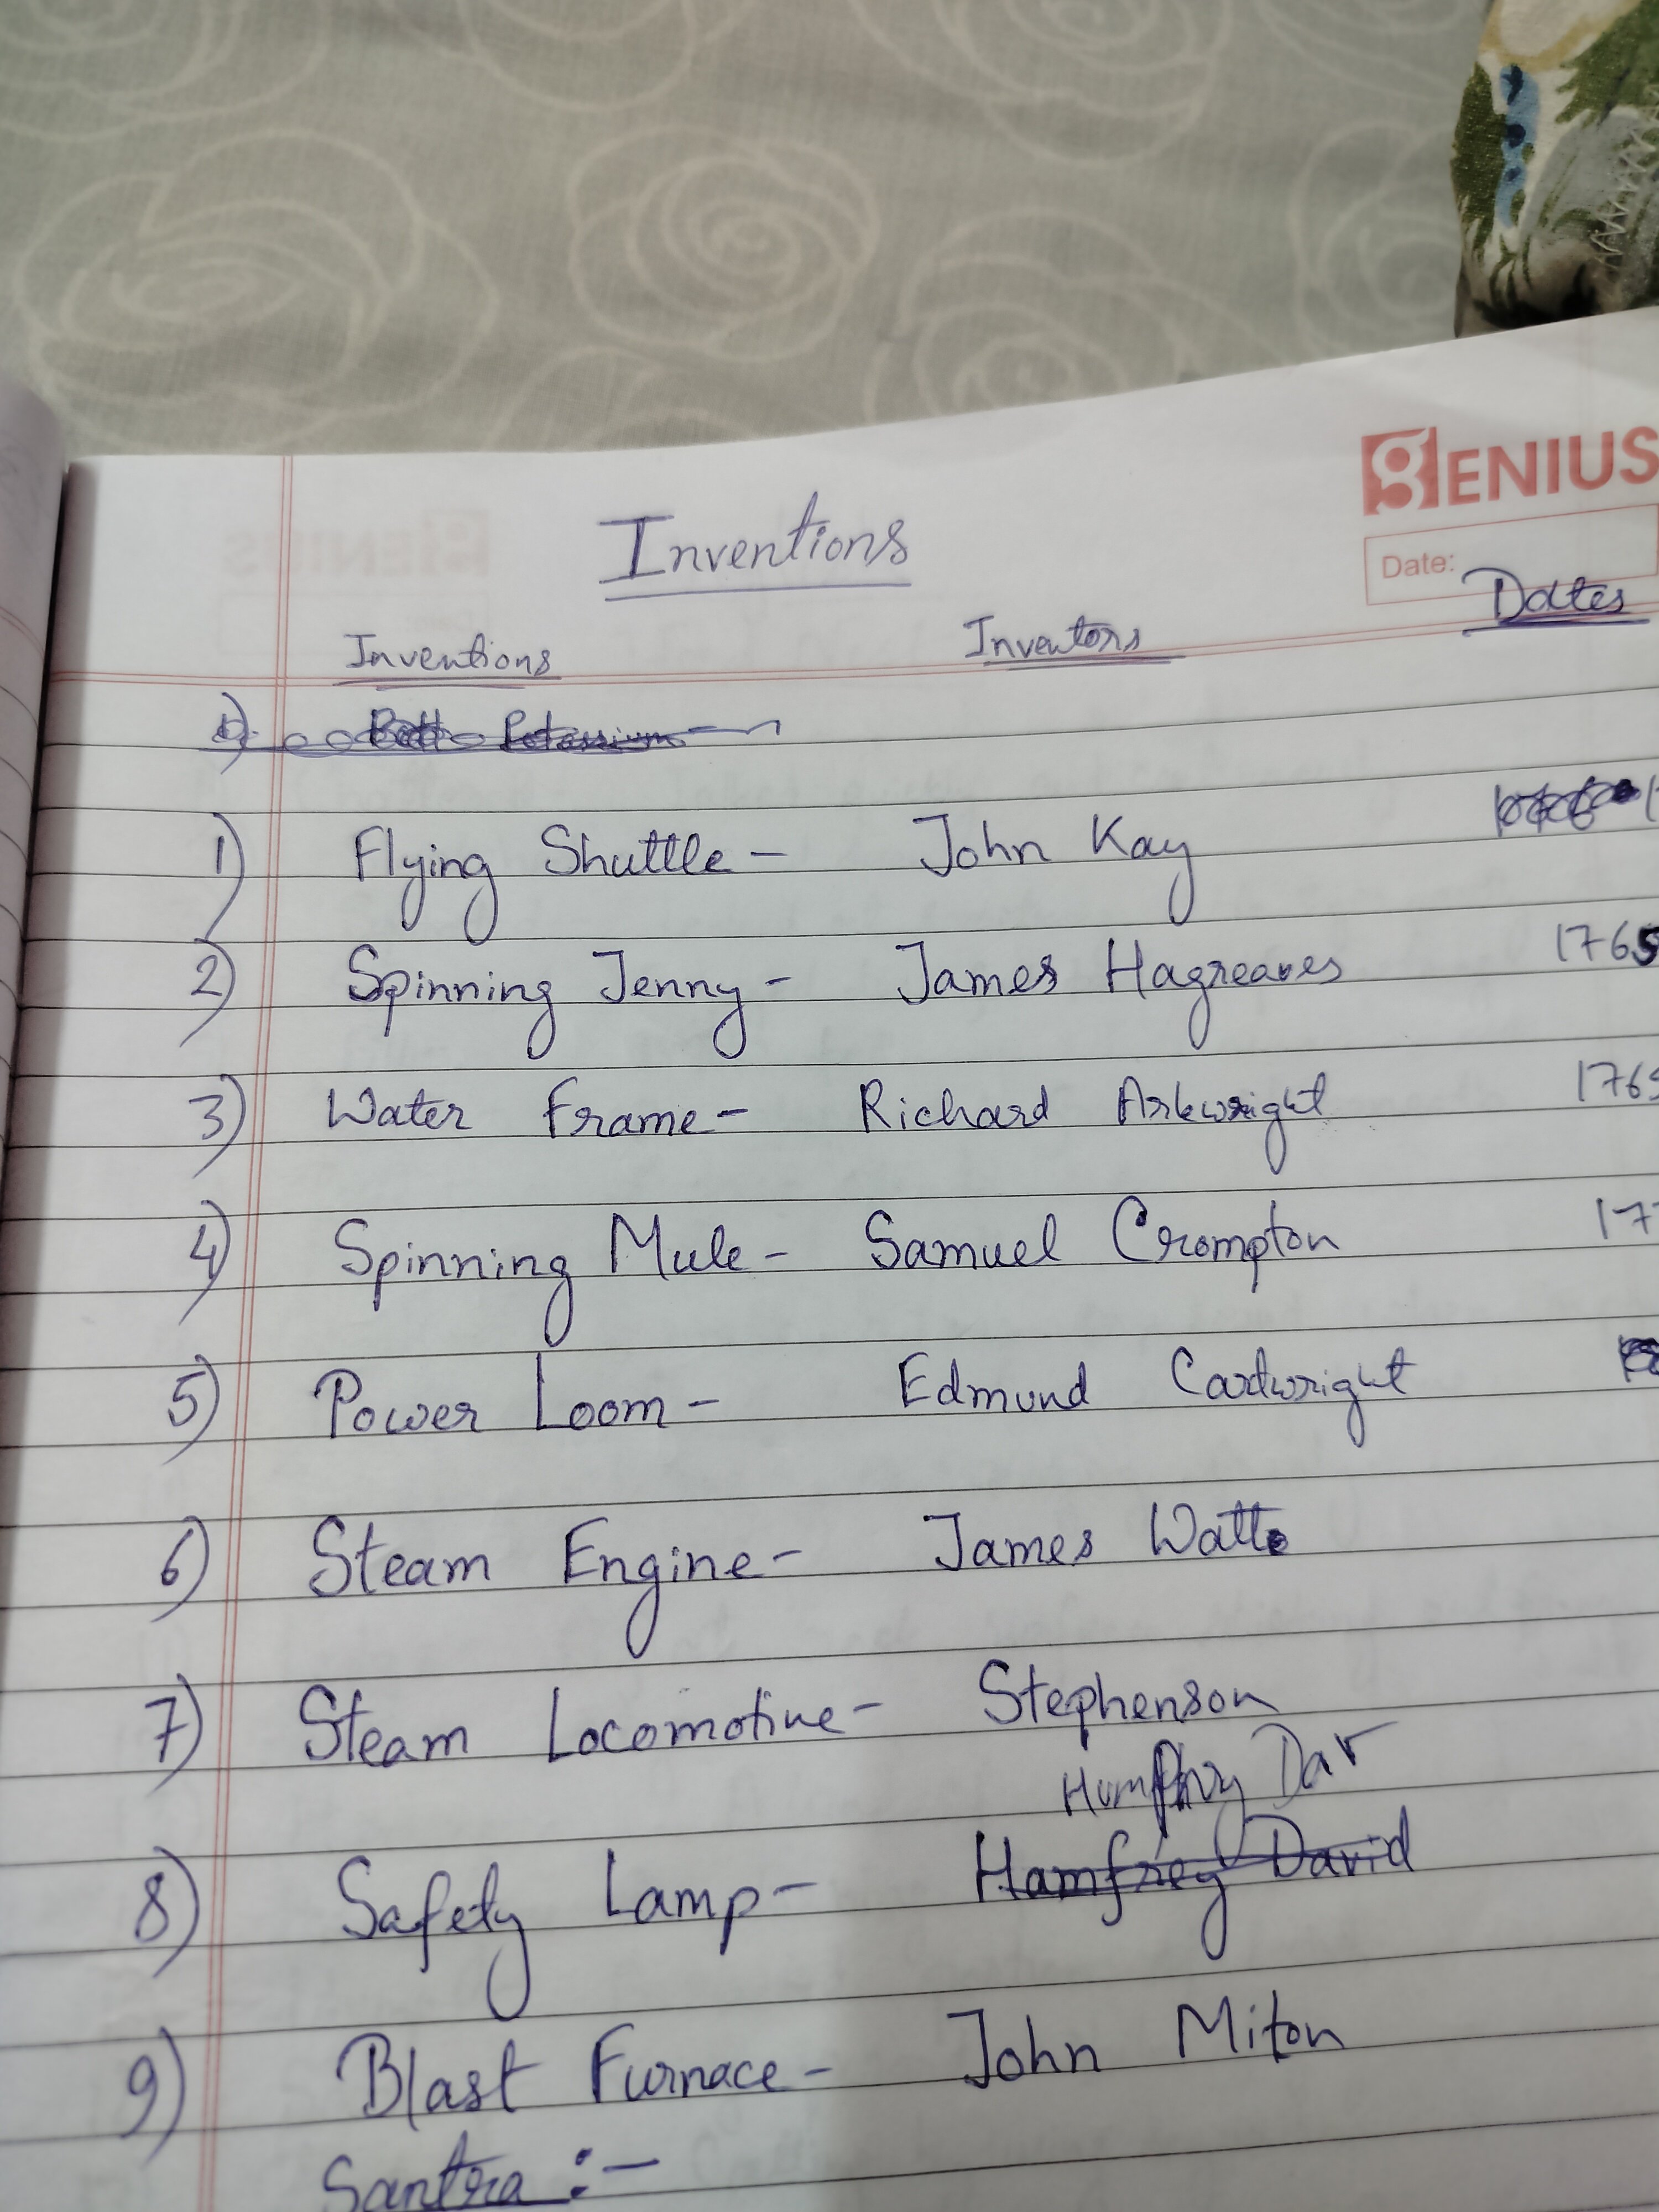 GENIUS
Date:
Inventions
Inventions Inventors Dates
Potassium
1) Flying Shuttle - John Kay
2) Spinning Jenny - James Hagreaves 1765
3) Water Frame - Richard Arkwright 176
4) Spinning Mule - Samuel Crompton 17
5) Power Loom - Edmund Cartwright
6) Steam Engine - James Watt
7) Steam Locomotive - Stephenson
Humphry Dav
8) Safety Lamp - Hamfrey David
9) Blast Furnace - John Miton
Santra :-